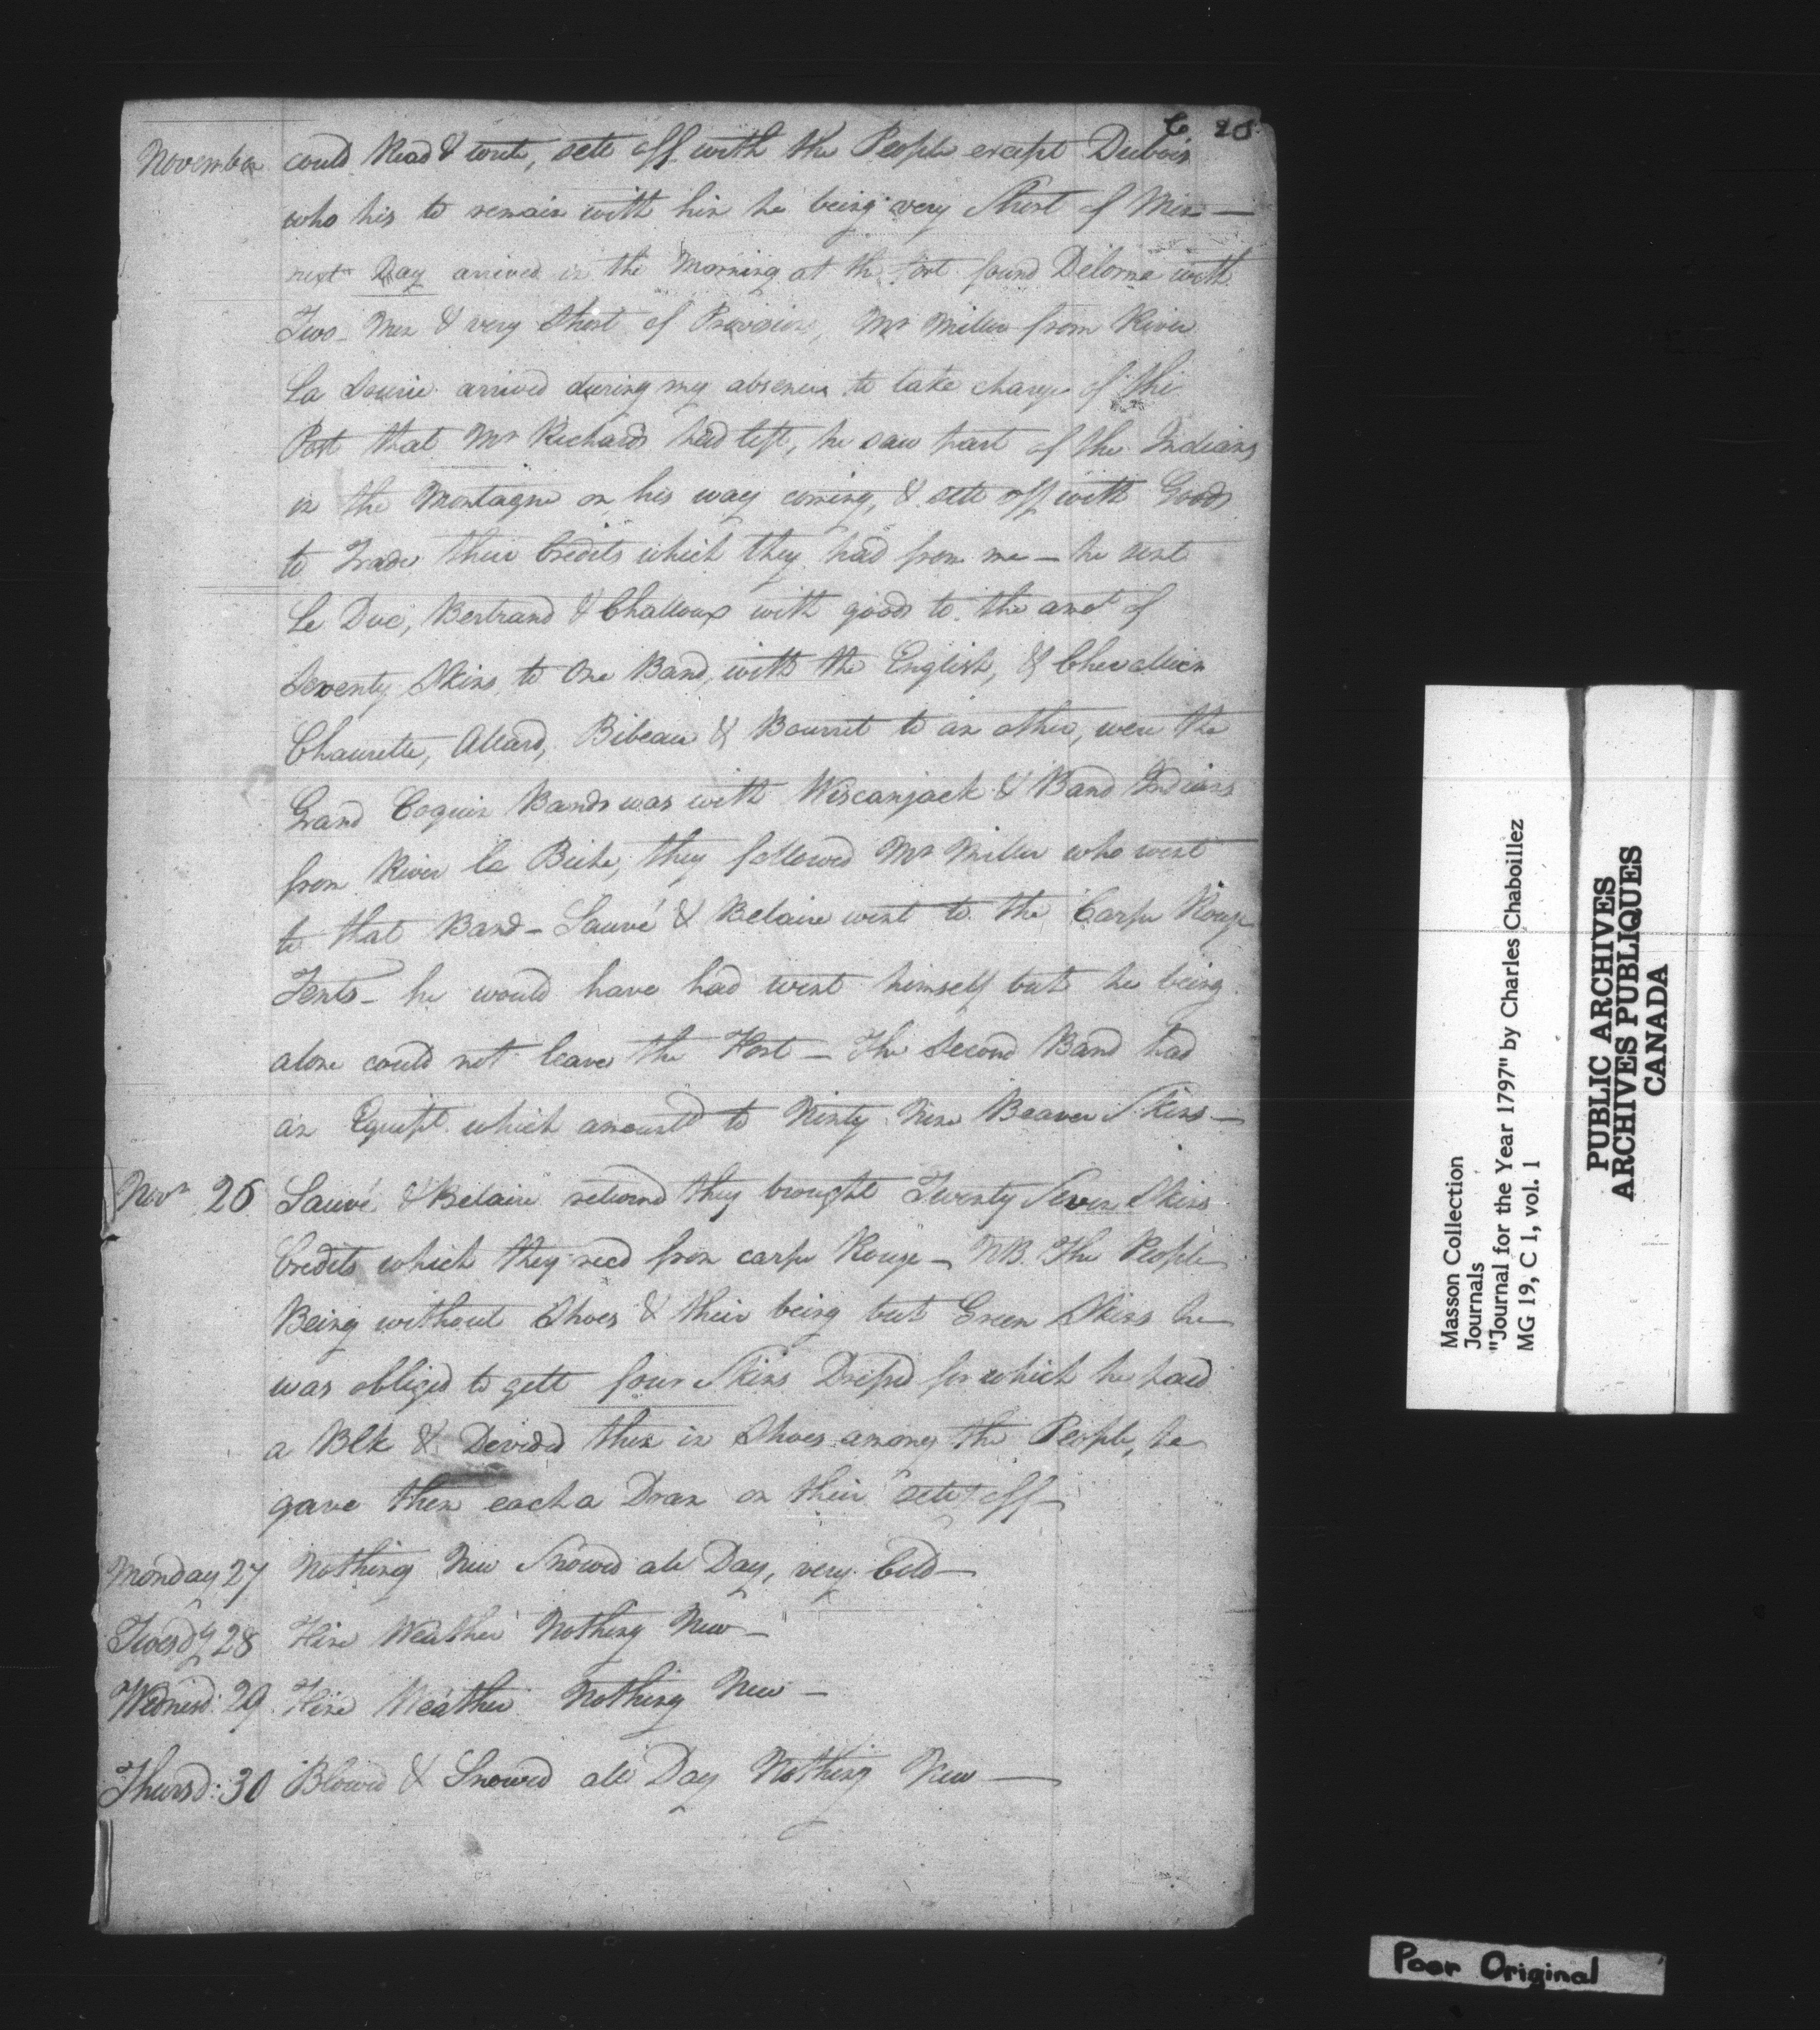 6. 20
November could Read & write, sett off with the People except Dubois
who his to remain with him he being very Short of Men —
next Day arrived in the Morning at the fort found Delorme with
Two Men & very Short of Provisions, Mr Miller from River
La Sourie arrived during my absence to take charge of the
Post that Mr Richards had left, he saw part of the Indians
in the Montagne on his way coming, & sett off with Goods
to Trade their Credits which they had from me — he sent
Le Duc, Bertrand & Challoux with goods to the amt of
Seventy Skins to One Band, with the English, & Chevallier
Chaurette, Allard, Bibeau & Bourret to an other, were the
Grand Coquin Bands was with Wiscanjack & Band Indians
from River la Biche, they followed Mr Miller who went
to that Band — Sauvé & Belaire went to the Carpe Rouge
Tents — he would have had went himself but he being
alone could not leave the Fort — The Second Band had
an Equipt which amountd to Ninty Nine Beaver Skins —
Novr 26 Sauvé & Belaire returnd they brought Twenty Seven Skins
Credits which they recd from carpe Rouge — NB. The People
Being without Shoes & their being but Green Skins he
was obliged to gett four Skins Dressd for which he paid
a Blk & Devided them in Shoes among the People, he
gave them each a Dram on their sett off —
Monday 27 Nothing New Snowed all Day, very Cold —
Tuesdy 28 Fine Weather Nothing New —
Wednesd: 29. Fine Weather Nothing New —
Thursd: 30 Blowed & Snowed all Day Nothing New —
Masson Collection
Journals
"Journal for the Year 1797" by Charles Chaboillez
MG 19, C 1, vol. 1
PUBLIC ARCHIVES
ARCHIVES PUBLIQUES
CANADA
Poor Original